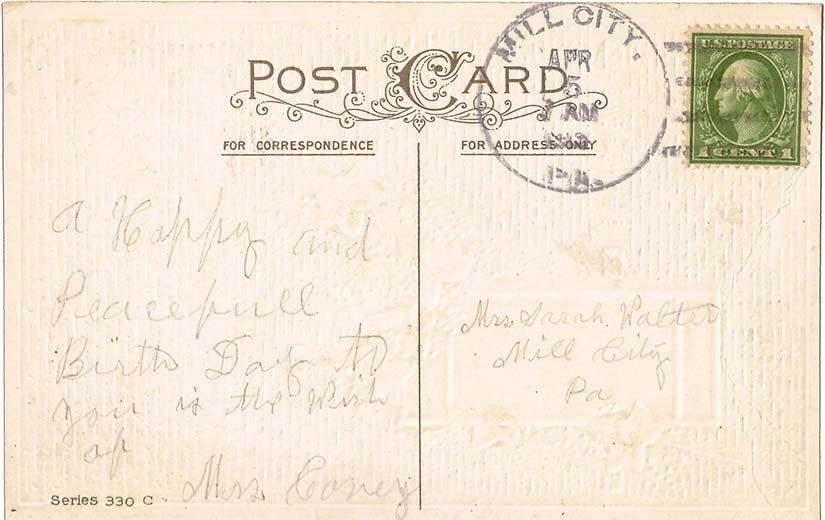 POST CARD
FOR CORRESPONDENCE
FOR ADDRESS ONLY
MILL CITY.
APR
5
7 AM
PA.
U.S. POSTAGE
1 CENT 1
A Happy and
Peacefull
Birth Day to
you is the Wish
of
Mrs Coney
Mrs Sarah Walter
Mill City
Pa
Series 330 C